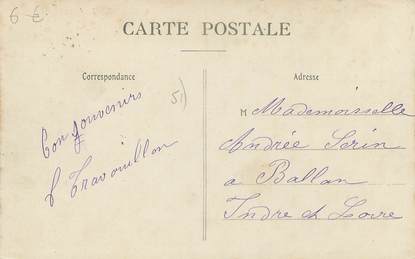 6 €
CARTE POSTALE
Correspondance
Adresse
Bon souvenirs
Travouillon
51)
M Mademoisselle
Andrée Serin
a Ballan
Indre et Loire